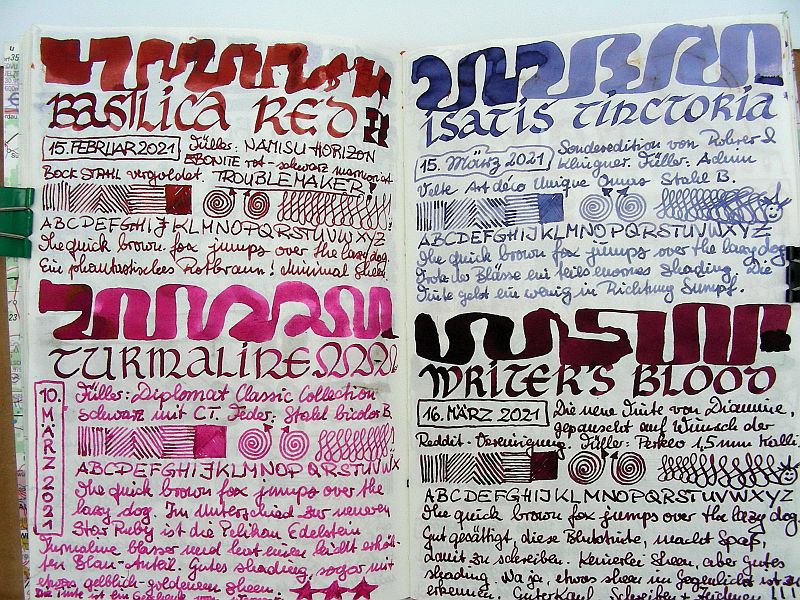 BASILICA RED
15. FEBRUAR 2021 Füller: NAMISU HORIZON
EBONITE rot-schwarz marmoriert
BOCK STAHL vergoldet. TROUBLEMAKER!
ABCDEFGHIJKLMNOPQRSTUVWXYZ
The quick brown fox jumps over the lazy dog.
Ein phantastisches Rotbraun! Minimal Sheen.
TURMALINE
10. MÄRZ 2021
Füller: Diplomat Classic Collection
schwarz mit CT. Feder: Stahl bicolor B.
ABCDEFGHIJKLMNOPQRSTUVWX
The quick brown fox jumps over the
lazy dog. Im Unterschied zur neueren
Star Ruby ist die Pelikan Edelstein
Turmaline blasser und hat einen leicht erhöh-
ten Blau-Anteil. Gutes shading, sogar mit
etwas gelblich-goldenem sheen.
Die Tinte ist ein
ISATIS TINCTORIA
15. März 2021 Sonderedition von Rohrer &
Klingner. Füller: Admin
Volte Art déco Unique Omas Stahl B.
ABCDEFGHIJKLMNOPQRSTUVWXYZ
The quick brown fox jumps over the lazy dog.
Trotz der Blässe ein teils enormes Shading. Die
Tinte geht ein wenig in Richtung Sumpf.
WRITER'S BLOOD
16. MÄRZ 2021 Die neue Tinte von Diamine,
gepanselt auf Wunsch der
Reddit-Vereinigung. Füller: Perkeo 1,5 mm Kalli.
ABCDEFGHIJKLMNOPQRSTUVWXYZ
The quick brown fox jumps over the lazy dog.
Gut gesättigt, diese Bluttinte, macht Spaß,
damit zu schreiben. Keinerlei Sheen, aber gutes
shading. Na ja, etwas sheen im Gegenlicht ist zu
erkennen. Guter Kauf. Schreiben + Zeichnen!!!